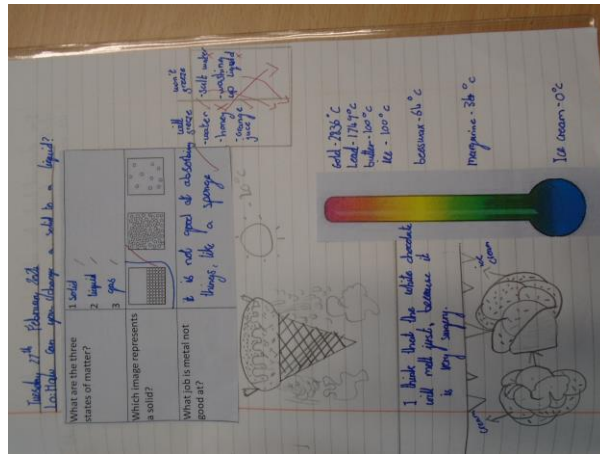 Tuesday 27th February 2024
Lo: How can you change a solid to a liquid?
What are the three
states of matter?
1 solid
2 liquid
3 gas
Which image represents
a solid?
What job is metal not
good at?
it is not good at absorbing
things, like a sponge
will
freeze
-water
-honey
-orange
juice
won't
freeze
-salt water
-washing
up liquid
gold-2836°c
Lead-1749°c
butter-100°c
ice-100°c
beeswax-64°c
margarine-36°c
Ice cream-0°c
I think that the white chocolate
will melt first, because it
is very sugary.
cream
ice
cream